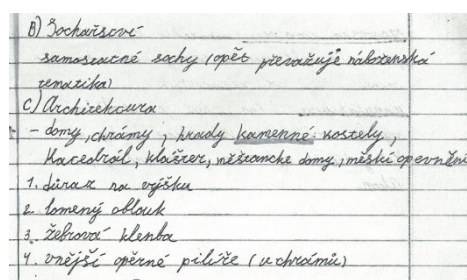 B) Sochařství
samostatné sochy (opět převažuje náboženská
tematika)
C) Architektura
- domy, chrámy, hrady kamenné kostely,
Katedrál, klášter, měšťanské domy, městská opevnění
1. důraz na výšku
2. lomený oblouk
3. žebrová klenba
4. vnější opěrné pilíře (u chrámů)